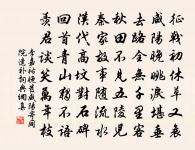 征戰初休草又衰
咸陽晚眺淚堪垂
去路全無千里客
秋田不見五陵兒
秦家故事隨流水
漢代高墳對石碑
回首青山獨不語
羨君談笑萬年枝
李嘉祐晚發咸陽寄同
院遺補詞典網集